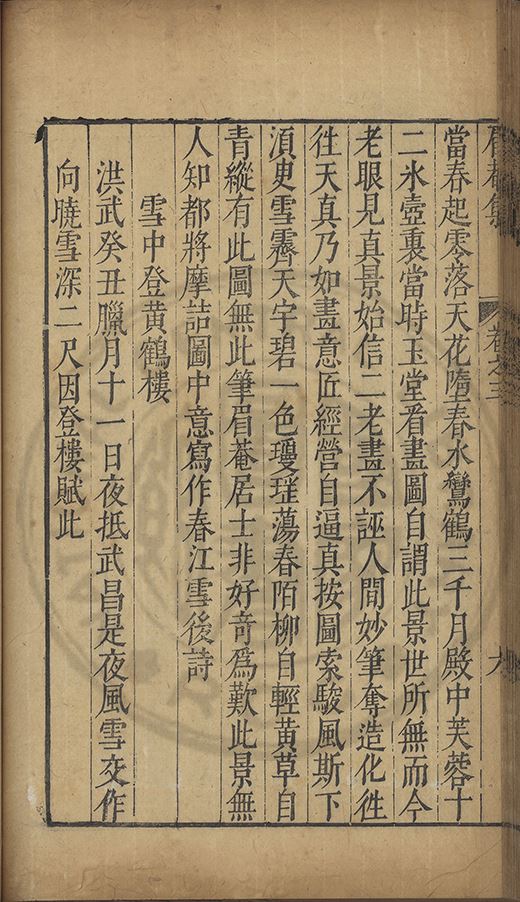 眉菴集 卷之三 六
當春起零落天花墮春水鸞鶴三千月殿中芙蓉十
二氷壺裏當時玉堂看畫圖自謂此景世所無而今
老眼見真景始信二老畫不誣人間妙筆奪造化徃
徃天真乃如畫意匠經營自逼真按圖索駿風斯下
湏臾雪霽天宇碧一色瓊瑤蕩春陌柳自輕黄草自
青縱有此圖無此筆眉菴居士非好竒爲歎此景無
人知都將摩詰圖中意寫作春江雪後詩
雪中登黄鶴樓
洪武癸丑臘月十一日夜抵武昌是夜風雪交作
向曉雪深二尺因登樓賦此